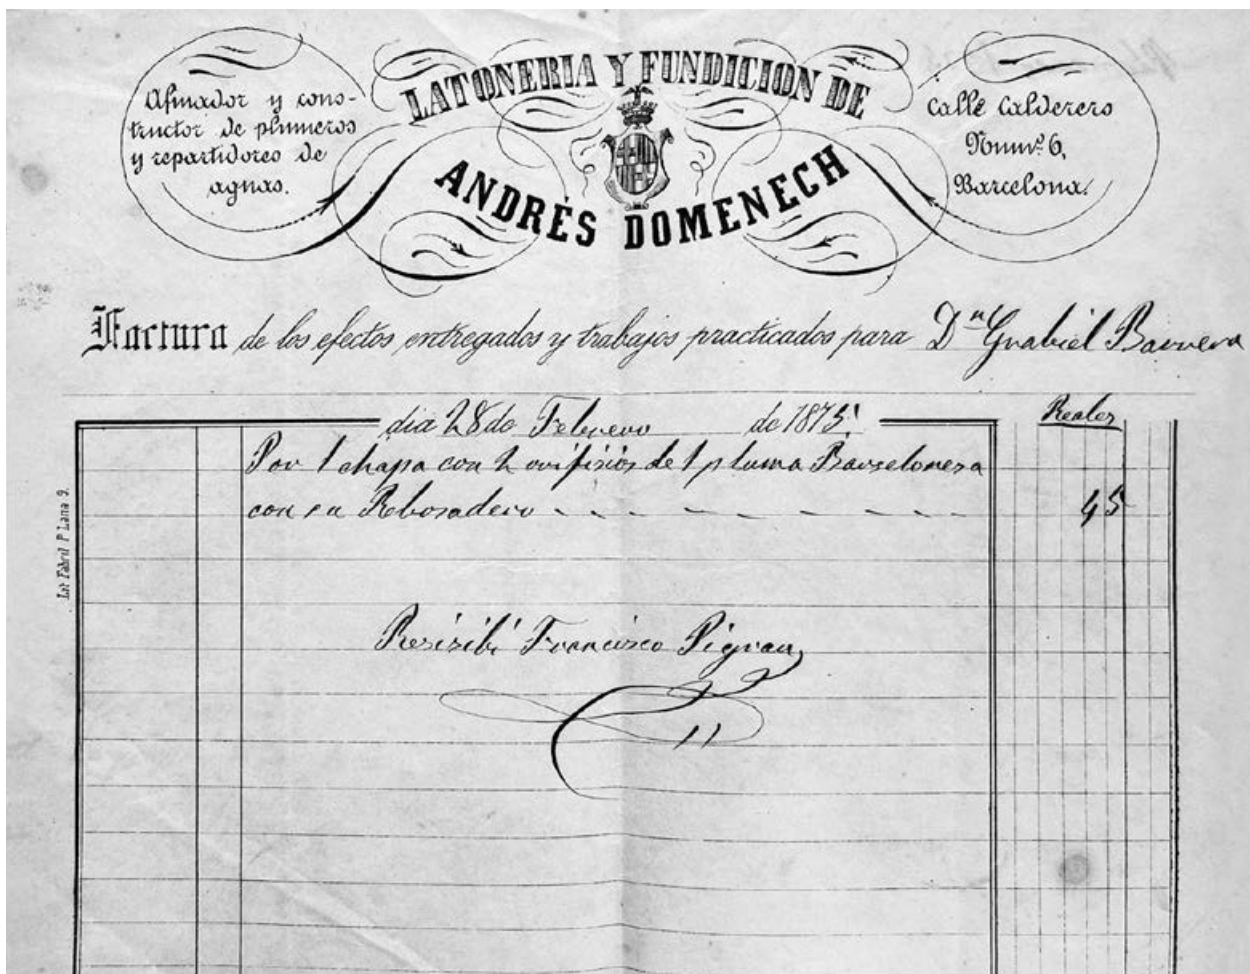 Afinador y cons-
tructor de plumeros
y repartidores de
aguas.
LATONERIA Y FUNDICION DE
ANDRÉS DOMENECH
Calle Calderers
Numº 6,
Barcelona.
Factura de los efectos entregados y trabajos practicados para Dn Grabiel
dia 28 de Febrero de 1875
Reales
Por 1 chapa con 2 orifisios de 1 pluma Barselonesa
con su Rebosadero - - - - - - - - 45
Resisibi Francisco Pigrau
Lit Fabril P. Lana 9.